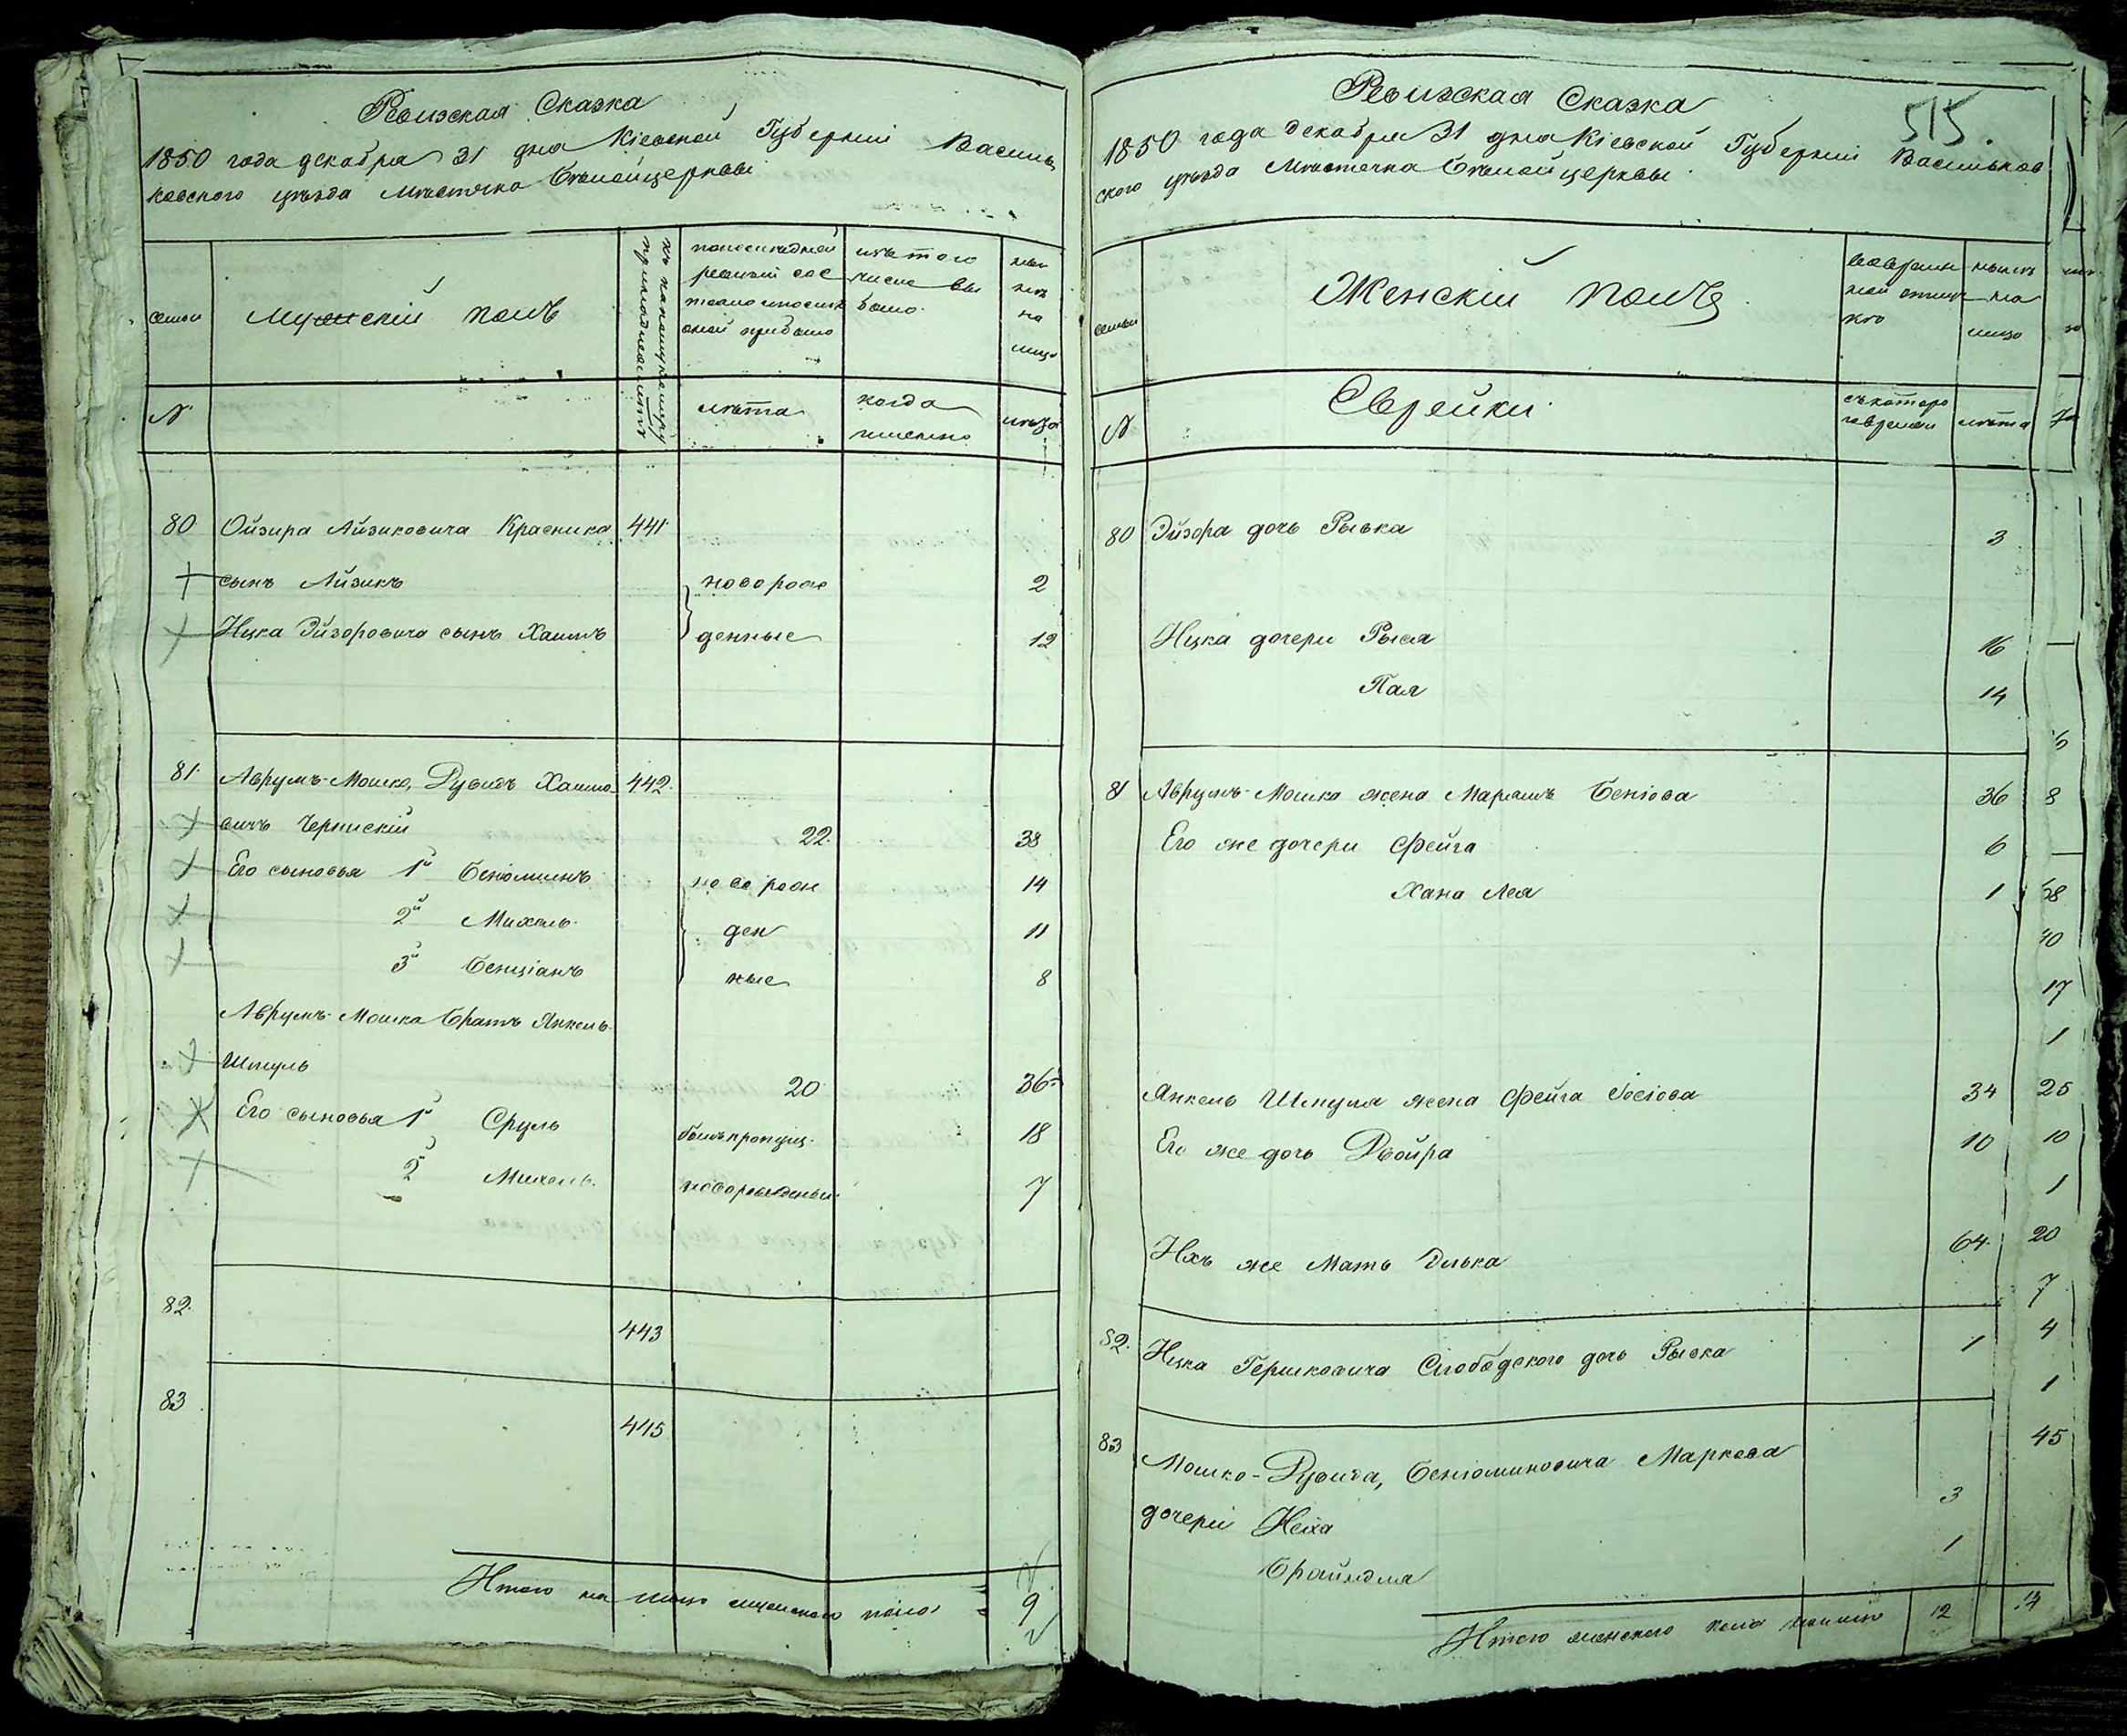 Ревизская Сказка
1850 года декабря 31 дня Кіевской Губерніи Василь
ковского уѣзда мѣстечка Бѣлойцеркви
семьи
Мужскій полъ
къ какому номеру принадлежитъ
по последней
ревизіи сос
тояло и после
оной прибыло
изъ того
числа вы
было
ны
нѣ
на
лицо
№
лѣта
когда
именно
лѣта
80 Ойзира Айзиковича Красника 441
сынъ Айзикъ новорож 2
Ицка Эйзоровича сынъ Хаимъ денные 12
81 Аврумъ-Мошко, Рувидъ Хаимо 442
вичъ Чернискій 22 38
Его сыновья 1й Бенюминъ новорож 14
2й Михель ден 11
3й Бенціанъ ные 8
Аврумъ-Мошка братъ Янкель
Шмуль 20 36
Его сыновья 1й Сруль былъ пропущ. 18
2й Михель новорожденый 7
82 443
83 445
Итого на лицо мужского пола 9
Ревизская Сказка
515.
1850 года декабря 31 дня Кіевской Губерніи Васильков
ского уѣзда мѣстечка Бѣлойцеркви
семьи
Женскій полъ
во времен
ной отлуч
ке
нынѣ
на
лицо
№
Еврейки
съ которо
го времени
лѣта
80 Эйзора дочь Рывка 3
Ицка дочери Рыся 16
Пая 14
81 Аврумъ-Мошка жена Маріамъ Беніова 36 8
Его же дочери Фейга 6
Хана Лея 1 58
40
17
1
Янкель Шмуля жена Фейга Іосіова 34 25
Его же дочь Двойра 10 10
1
Ихъ же Мать Рывка 64 20
7
82 Ицка Гершковича Слободского дочь Рывка 1 4
1
45
83 Мошко-Рувида, Бенюминовича Маркова
дочери Неха 3
Брайндля 1
Итого женского пола налицо 12 14